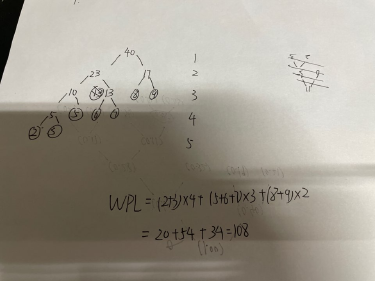 40 1
23 17 2
10 13 8 9 3
5 5 6 7 4
2 3
5
WPL = (2+3)×4+(5+6+7)×3+(8+9)×2
= 20+54+34=108